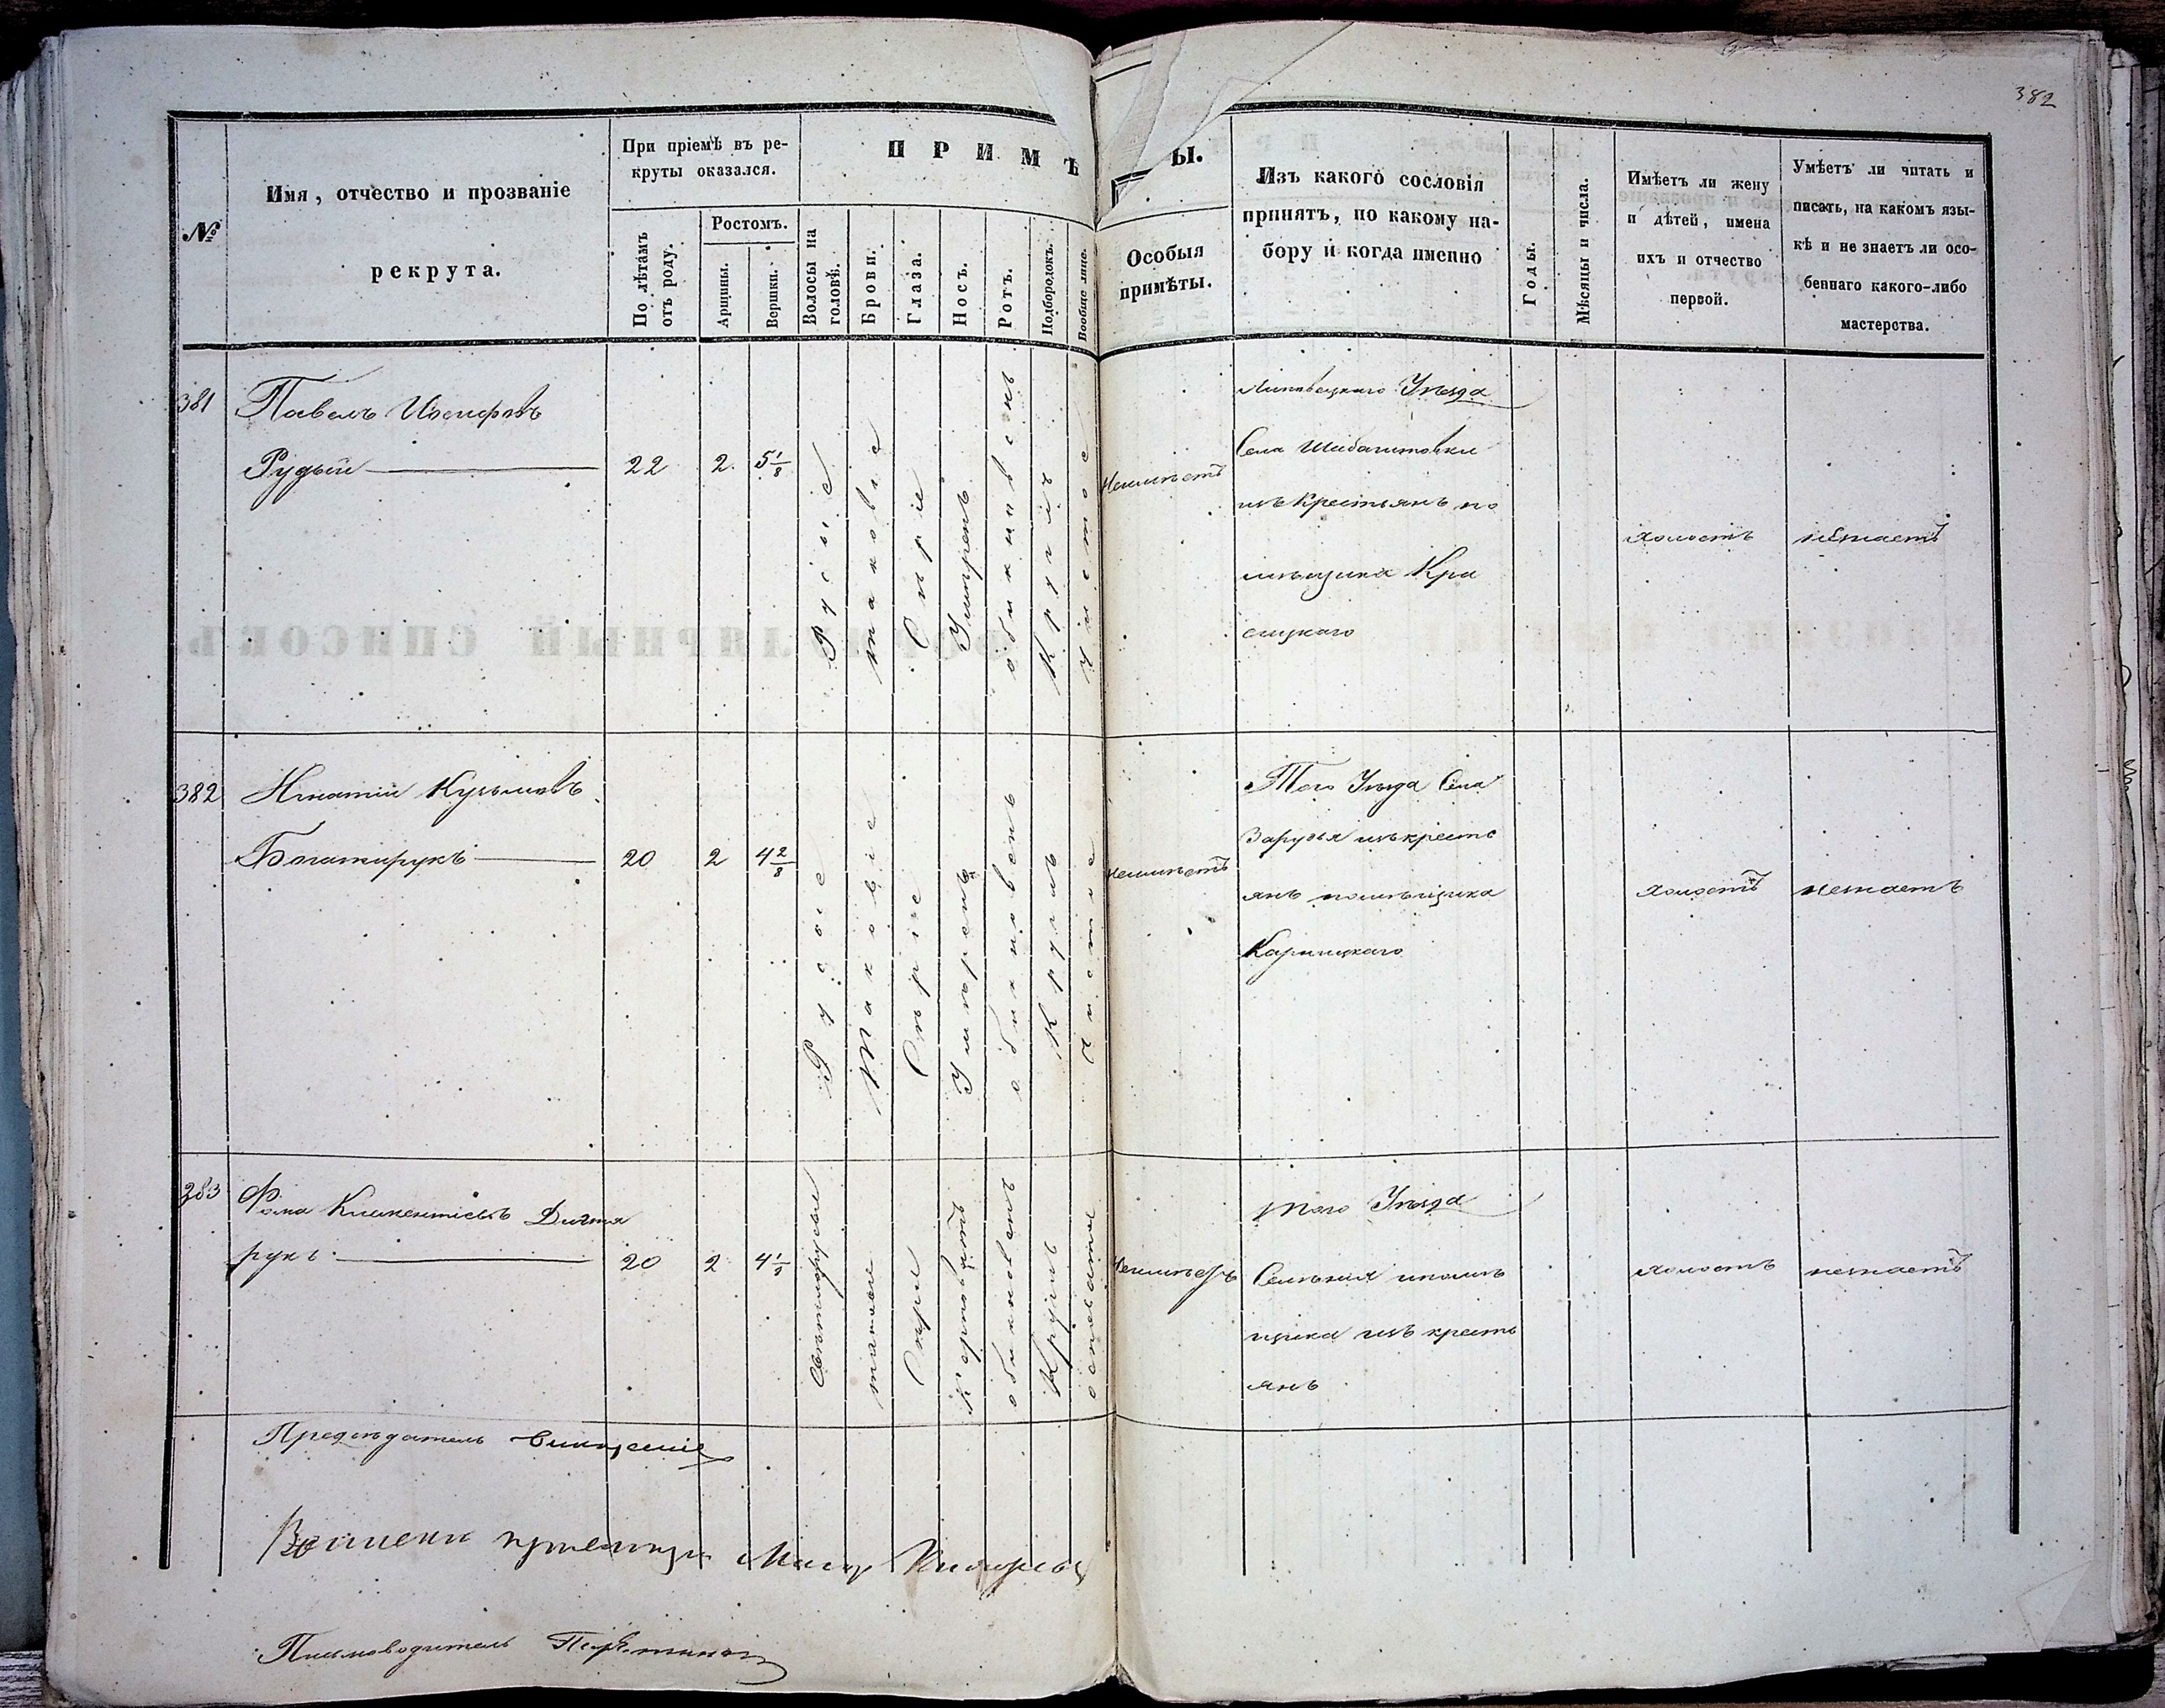 382
№
Имя, отчество и прозваніе
рекрута.
При пріемѣ въ ре-
круты оказался.
По лѣтамъ
отъ роду.
Ростомъ.
Аршины.
Вершки.
ПРИМѢ
ы.
Волосы на
головѣ.
Брови.
Глаза.
Носъ.
Ротъ.
Подбородокъ.
Вообще лице.
Особыя
примѣты.
Изъ какого сословія
принятъ, по какому на-
бору и когда именно
Годы.
Мѣсяцы и числа.
Имѣетъ ли жену
и дѣтей, имена
ихъ и отчество
первой.
Умѣетъ ли читать и
писать, на какомъ язы-
кѣ и не знаетъ ли осо-
беннаго какого-либо
мастерства.
381
Павелъ Иосифовъ
Рудый
22
2
5 1/8
Русые
таковые
Сѣріе
Умѣренъ
обикновенъ
Круглъ
чистое
Неимѣетъ
Липовецкаго Уѣзда
Села
изъ Крестьянъ по
мѣщика Кра
сицкаго
холостъ
незнаетъ
382
Игнатій Кузьмовъ
Богатирукъ
20
2
4 2/8
Русые
Таковіе
Сѣріе
Умѣренъ
обикновенъ
Круглъ
чистое
неимѣетъ
Того Уѣзда Села
Зарудья изъ кресть
янъ помѣщика
холостъ
незнаетъ
383
Фома Климентіевъ Дигтя
рукъ
20
2
4 1/8
Свѣтлорусые
таковые
Карые
обикновенъ
Круглъ
осповатое
Неимѣетъ
Того Уѣзда
щика изъ кресть
янъ
холостъ
незнаетъ
Предсѣдатель
Военный пріемщикъ Маіоръ
Письмоводитель